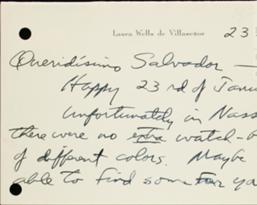 Laura Wells de Villaseñor 23
Queridísimo Salvador —
Happy 23rd of Janu
Unfortunately in Nass
there were no extra watch-b
of different colors. Maybe
able to find some for yo